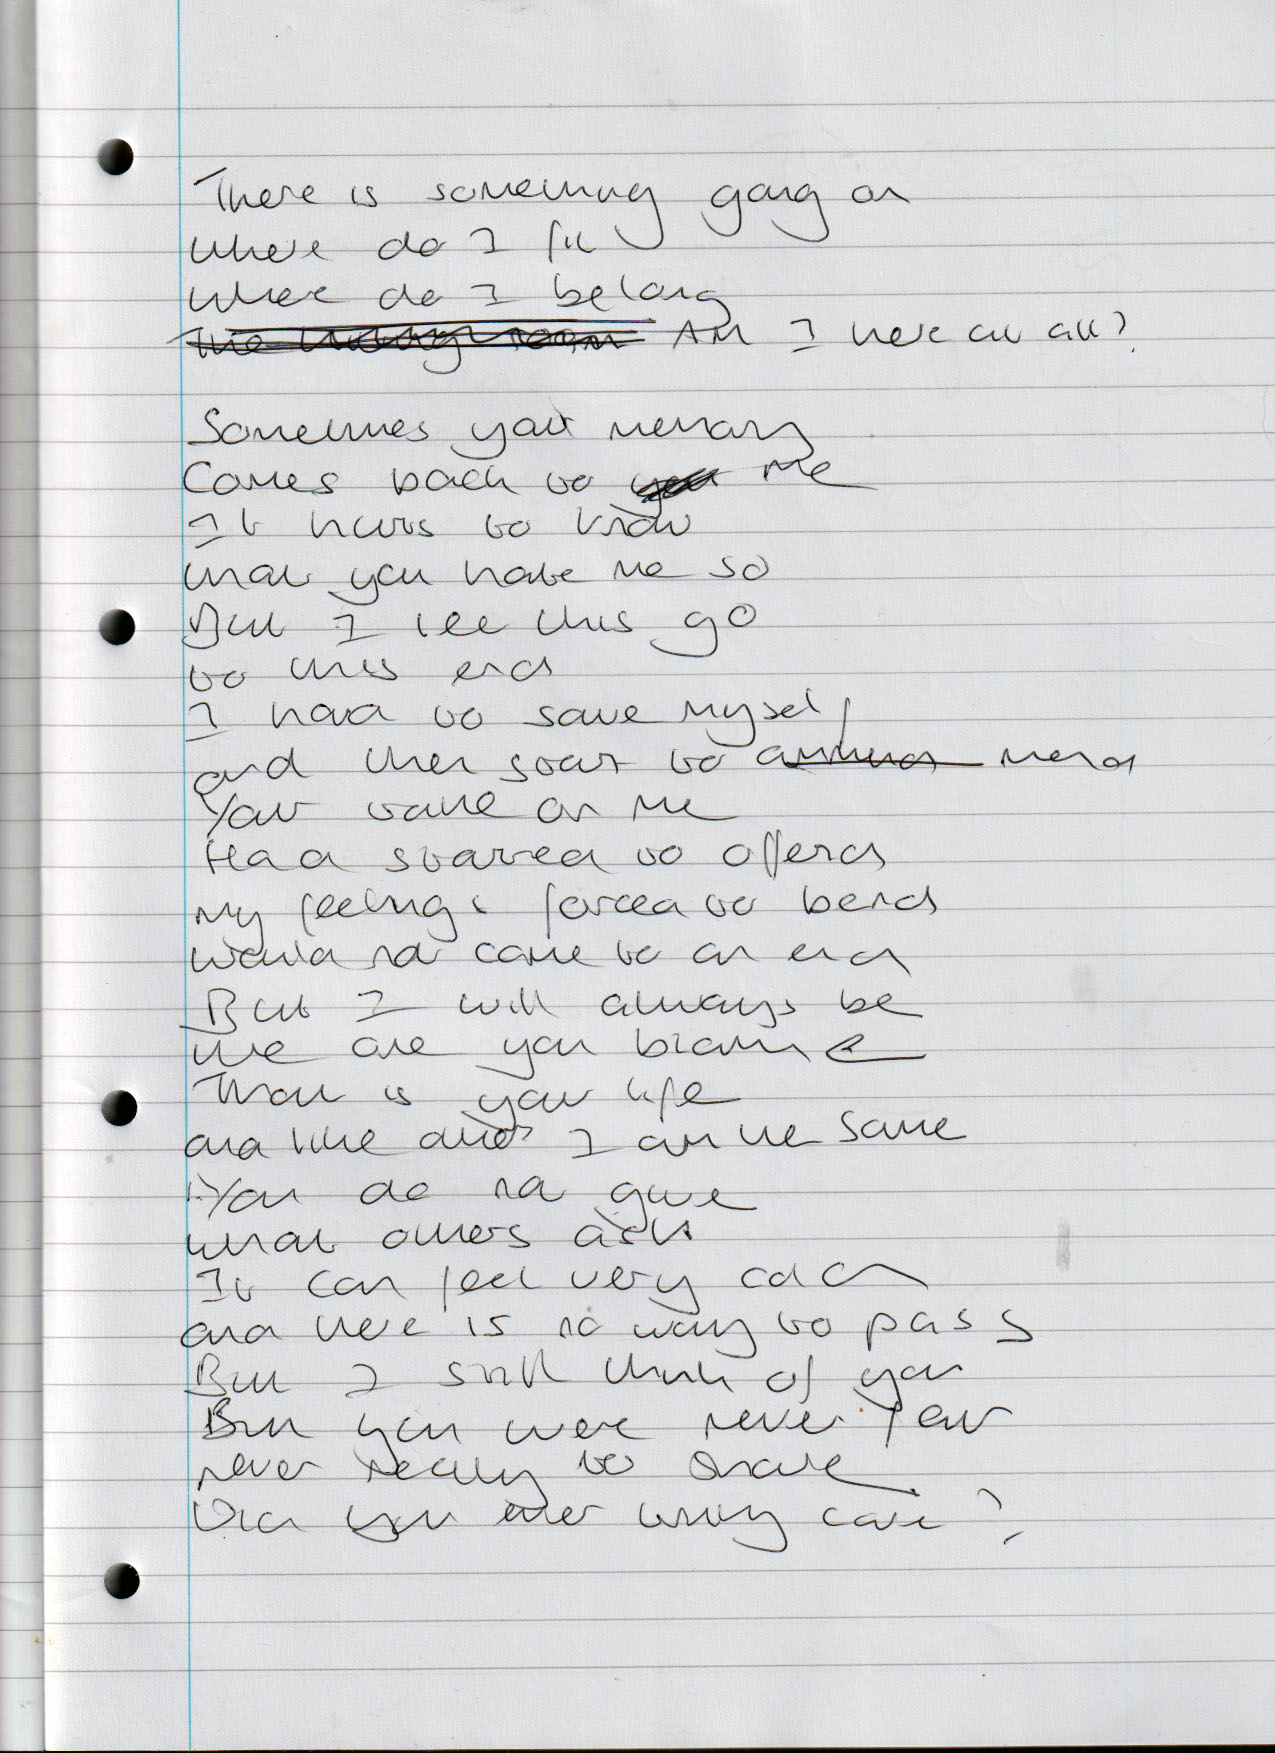 There is something going on
Where do I fit
Where do I belong
Am I here at all?
Sometimes your memory
Comes back to me
It hurts to know
that you hate me so
But I see this go
to this end
I had to save myself
and then start to mend
Your take on me
Had started to offend
My feelings forced to bend
Would not come to an end
But I will always be
the one you blame
That is your life
and like others I am the same
You do not give
what others ask
It can feel very cold
and there is no way to pass
But I still think of you
But you were never fair
never really to share
Did you ever truly care?